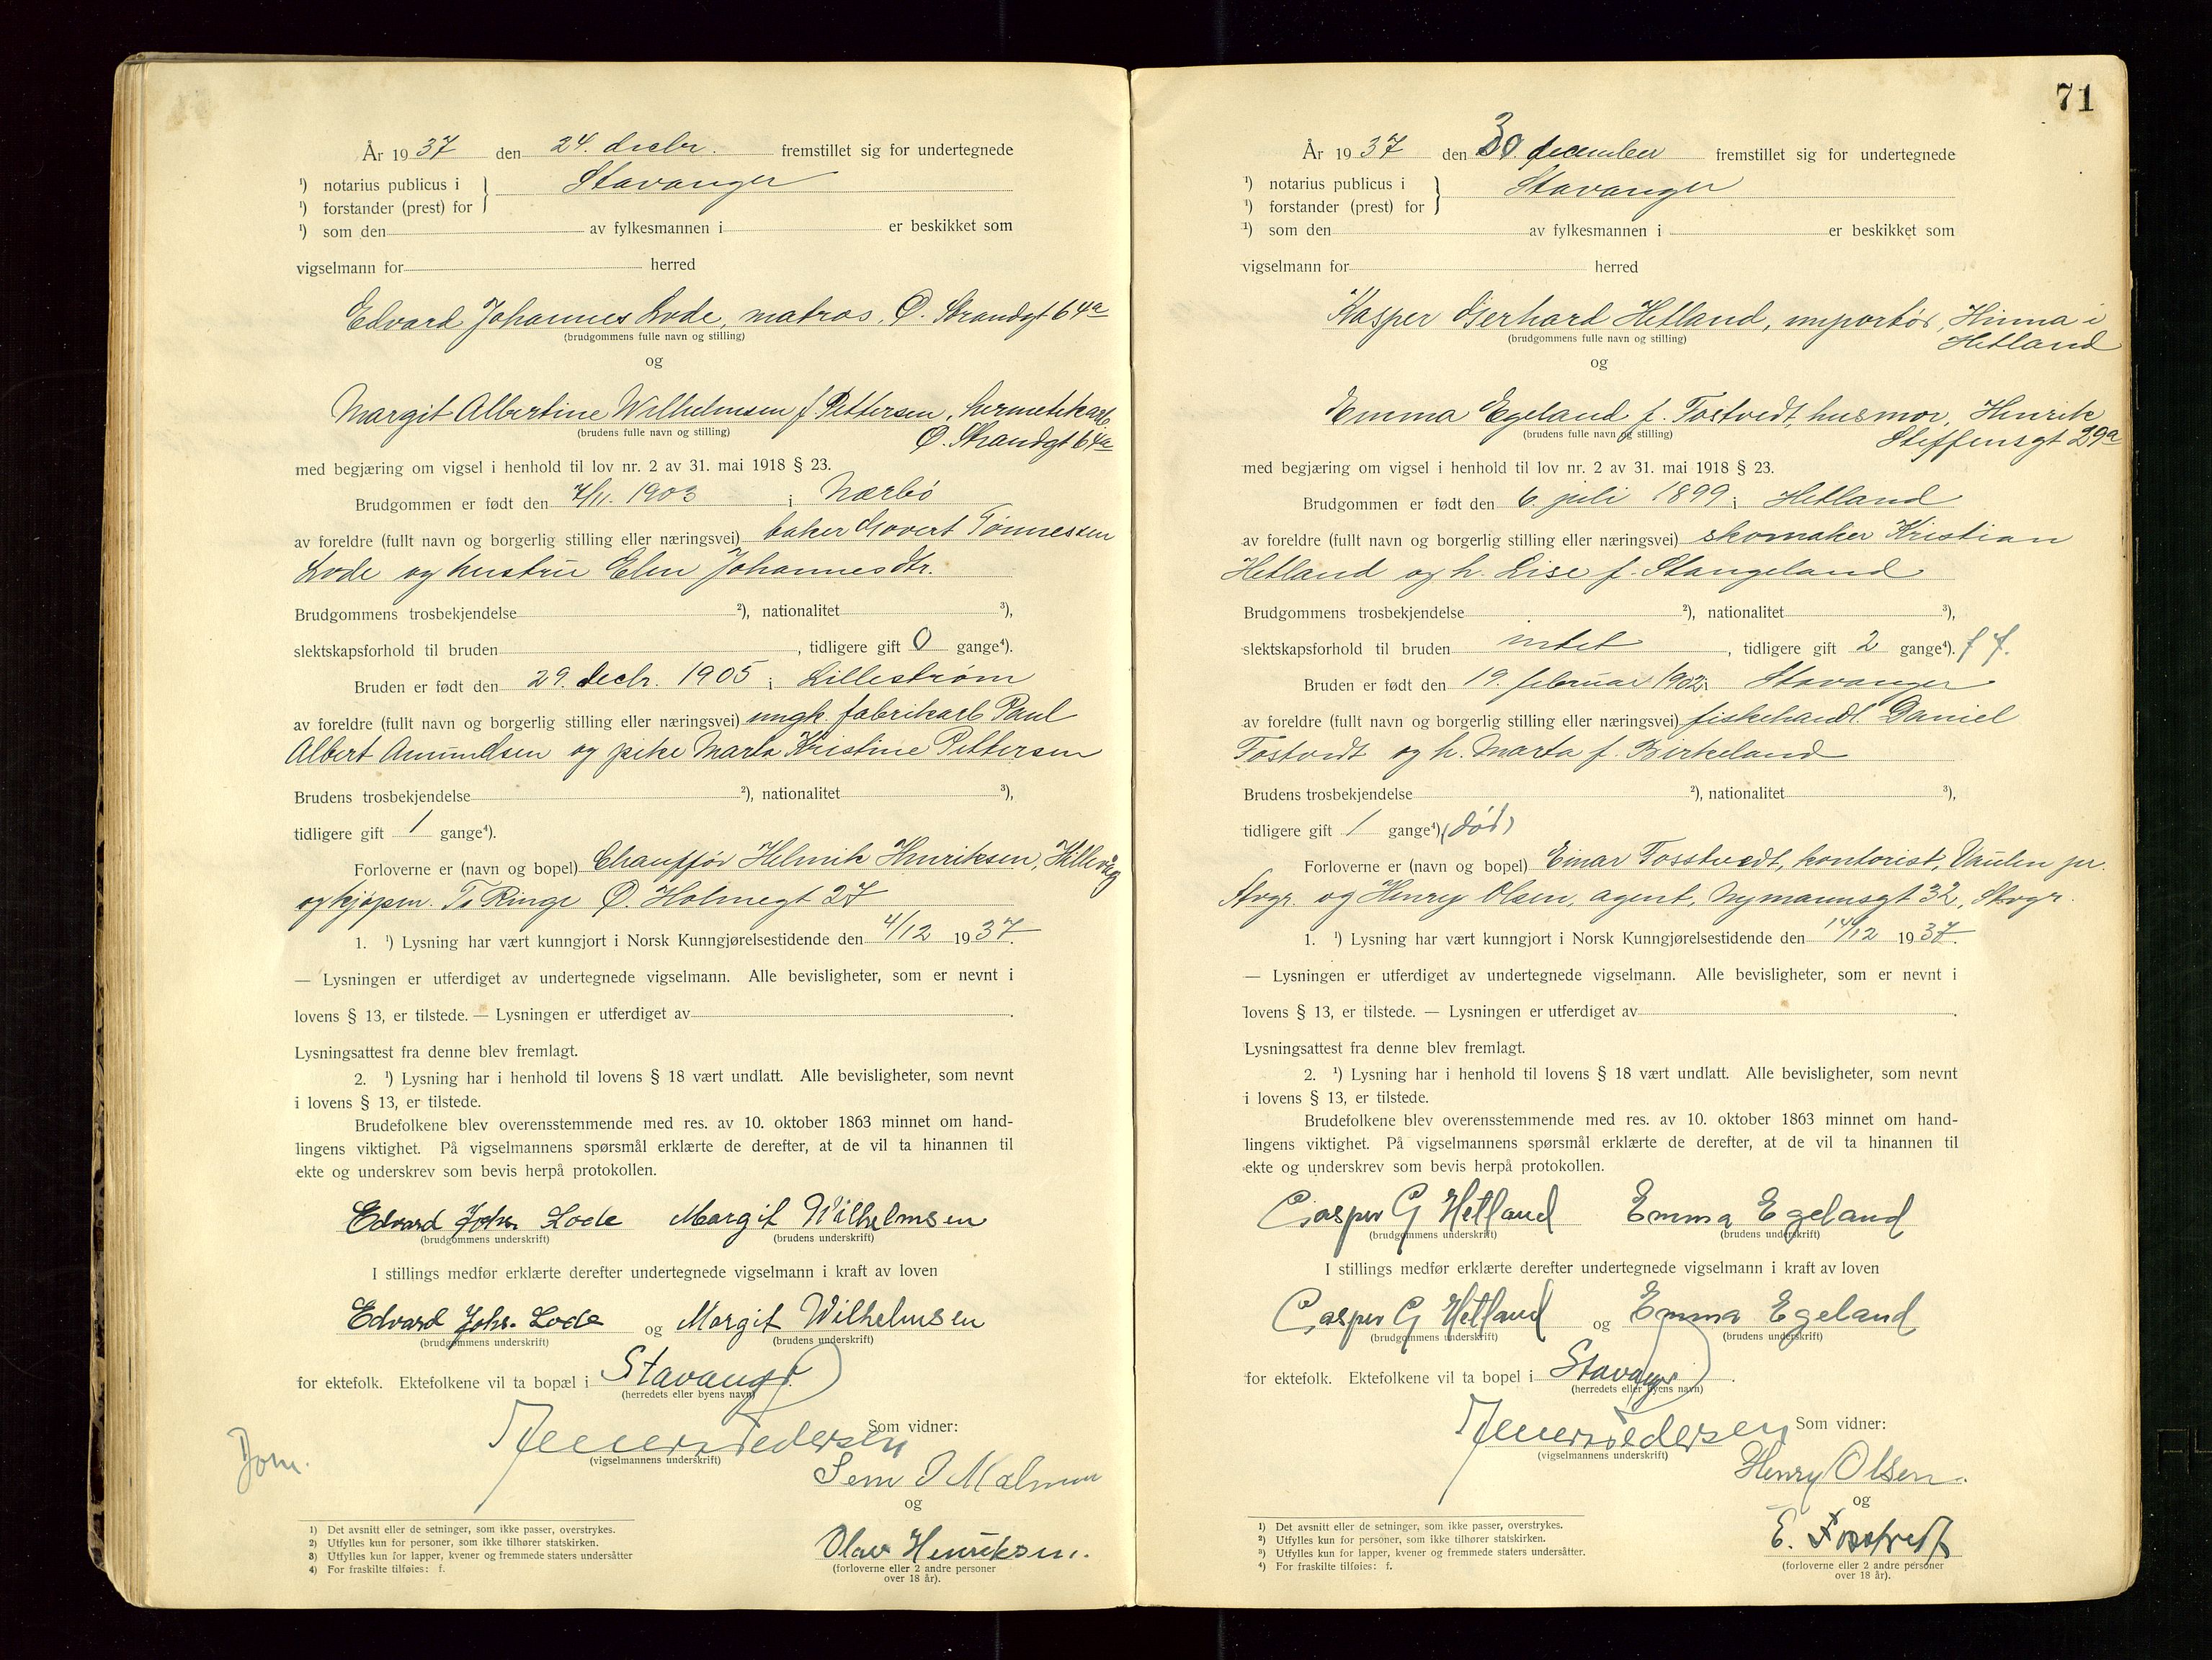 År 1937 den 24. decbr. fremstillet sig for undertegnede
¹) notarius publicus i } Stavanger
¹) forstander (prest) for
¹) som den av fylkesmannen i er beskikket som
vigselmann for herred
Edvard Johannes Lode, matros, Ø. Strandgt 64a
(brudgommens fulle navn og stilling)
og
Margit Albertine Wilhelmsen f. Pettersen, hermetikarb.
(brudens fulle navn og stilling)
Ø. Strandgt 64a
med begjæring om vigsel i henhold til lov nr. 2 av 31. mai 1918 § 23.
Brudgommen er født den 7/11. 1903 i Nærbø
av foreldre (fullt navn og borgerlig stilling eller næringsvei) baker Govert Tønnessen
Lode og hustru Elen Johannesdtr.
Brudgommens trosbekjendelse ²), nationalitet ³),
slektskapsforhold til bruden , tidligere gift 0 gange⁴).
Bruden er født den 29. decbr. 1905 i Lillestrøm
av foreldre (fullt navn og borgerlig stilling eller næringsvei) ungk. fabrikarb. Paul
Albert Amundsen og pike Marta Kristine Pettersen
Brudens trosbekjendelse ²), nationalitet ³),
tidligere gift 1 gange⁴).
Forloverne er (navn og bopel) Chauffør Helmik Henriksen, Hillevåg
og kjøpm. Ts Ringe Ø. Holmegt 27
1. ¹) Lysning har vært kunngjort i Norsk Kunngjørelsestidende den 4/12 1937.
— Lysningen er utferdiget av undertegnede vigselmann. Alle bevisligheter, som er nevnt i
lovens § 13, er tilstede. — Lysningen er utferdiget av .
Lysningsattest fra denne blev fremlagt.
2. ¹) Lysning har i henhold til lovens § 18 vært undlatt. Alle bevisligheter, som nevnt
i lovens § 13, er tilstede.
Brudefolkene blev overensstemmende med res. av 10. oktober 1863 minnet om hand-
lingens viktighet. På vigselmannens spørsmål erklærte de derefter, at de vil ta hinannen til
ekte og underskrev som bevis herpå protokollen.
Edvard Johs. Lode Margit Wilhelmsen
(brudgommens underskrift) (brudens underskrift)
I stillings medfør erklærte derefter undertegnede vigselmann i kraft av loven
Edvard Johs. Lode og Margit Wilhelmsen
(brudgommens underskrift) (brudens underskrift)
for ektefolk. Ektefolkene vil ta bopæl i Stavanger.
(herredets eller byens navn)
Som vidner:
(vigselmannens underskrift)
Dom.
og
Olav Henriksen.
(forloverne eller 2 andre personer
over 18 år).
1) Det avsnitt eller de setninger, som ikke passer, overstrykes.
2) Utfylles kun for personer, som ikke tilhører statskirken.
3) Utfylles kun for lapper, kvener og fremmede staters undersåtter
4) For fraskilte tilføies: f.
71
År 1937 den 30. december fremstillet sig for undertegnede
¹) notarius publicus i } Stavanger
¹) forstander (prest) for
¹) som den av fylkesmannen i er beskikket som
vigselmann for herred
Kasper Gerhard Hetland, importør, Hinna i
Hetland
(brudgommens fulle navn og stilling)
og
Emma Egeland f. Tostvedt, husmor, Henrik
Steffensgt 29a
(brudens fulle navn og stilling)
med begjæring om vigsel i henhold til lov nr. 2 av 31. mai 1918 § 23.
Brudgommen er født den 6. juli 1899 i Hetland
av foreldre (fullt navn og borgerlig stilling eller næringsvei) skomaker Kristian
Hetland og h. Lise f. Stangeland
Brudgommens trosbekjendelse ²), nationalitet ³),
slektskapsforhold til bruden intet , tidligere gift 2 gange⁴). f f.
Bruden er født den 19. februar 1902 i Stavanger
av foreldre (fullt navn og borgerlig stilling eller næringsvei) fiskehandl. Daniel
Tostvedt og h. Marta f. Birkeland
Brudens trosbekjendelse ²), nationalitet ³),
tidligere gift 1 gange⁴) (død)
Forloverne er (navn og bopel) Einar Tosstvedt, kontorist, Vaulen pr.
Stvgr. og Henry Olsen, agent, Nymannsgt 32, Stvgr.
1. ¹) Lysning har vært kunngjort i Norsk Kunngjørelsestidende den 14/12 1937.
— Lysningen er utferdiget av undertegnede vigselmann. Alle bevisligheter, som er nevnt i
lovens § 13, er tilstede. — Lysningen er utferdiget av .
Lysningsattest fra denne blev fremlagt.
2. ¹) Lysning har i henhold til lovens § 18 vært undlatt. Alle bevisligheter, som nevnt
i lovens § 13, er tilstede.
Brudefolkene blev overensstemmende med res. av 10. oktober 1863 minnet om hand-
lingens viktighet. På vigselmannens spørsmål erklærte de derefter, at de vil ta hinannen til
ekte og underskrev som bevis herpå protokollen.
Casper G Hetland Emma Egeland
(brudgommens underskrift) (brudens underskrift)
I stillings medfør erklærte derefter undertegnede vigselmann i kraft av loven
Casper G Hetland og Emma Egeland
(brudgommens underskrift) (brudens underskrift)
for ektefolk. Ektefolkene vil ta bopel i Stavanger .
(herredets eller byens navn)
Som vidner:
(vigselmannens underskrift)
Henry Olsen.
og
E. Tosstvedt
(forloverne eller 2 andre personer
over 18 år).
1) Det avsnitt eller de setninger, som ikke passer, overstrykes.
2) Utfylles kun for personer, som ikke tilhører statskirken.
3) Utfylles kun for lapper, kvener og fremmede staters undersåtter.
4) For fraskilte tilføies: f.